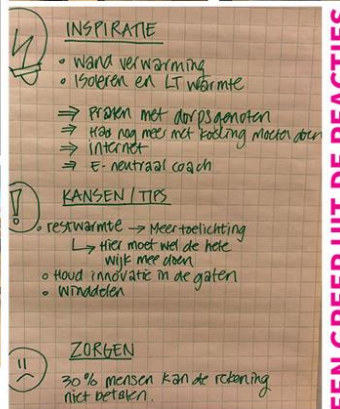 INSPIRATIE
• wand verwarming
• Isoleren en LT warmte
⇒ Praten met dorpsgenoten
⇒ Had nog meer met koeling moeten doen
⇒ internet
⇒ E-neutraal coach
KANSEN / TIPS
• restwarmte → Meer toelichting
↳ Hier moet wel de hele
wijk mee doen
• Houd innovatie in de gaten
• Winddelen
ZORGEN
30% mensen kan de rekening
niet betalen.
EEN GREEP UIT DE REACTIES